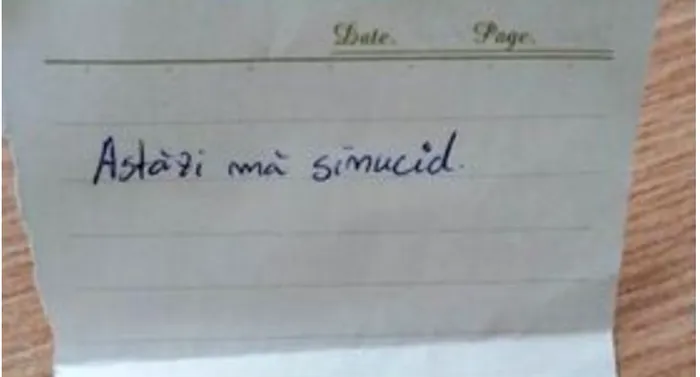 Date. Page.
Astăzi mă sinucid.